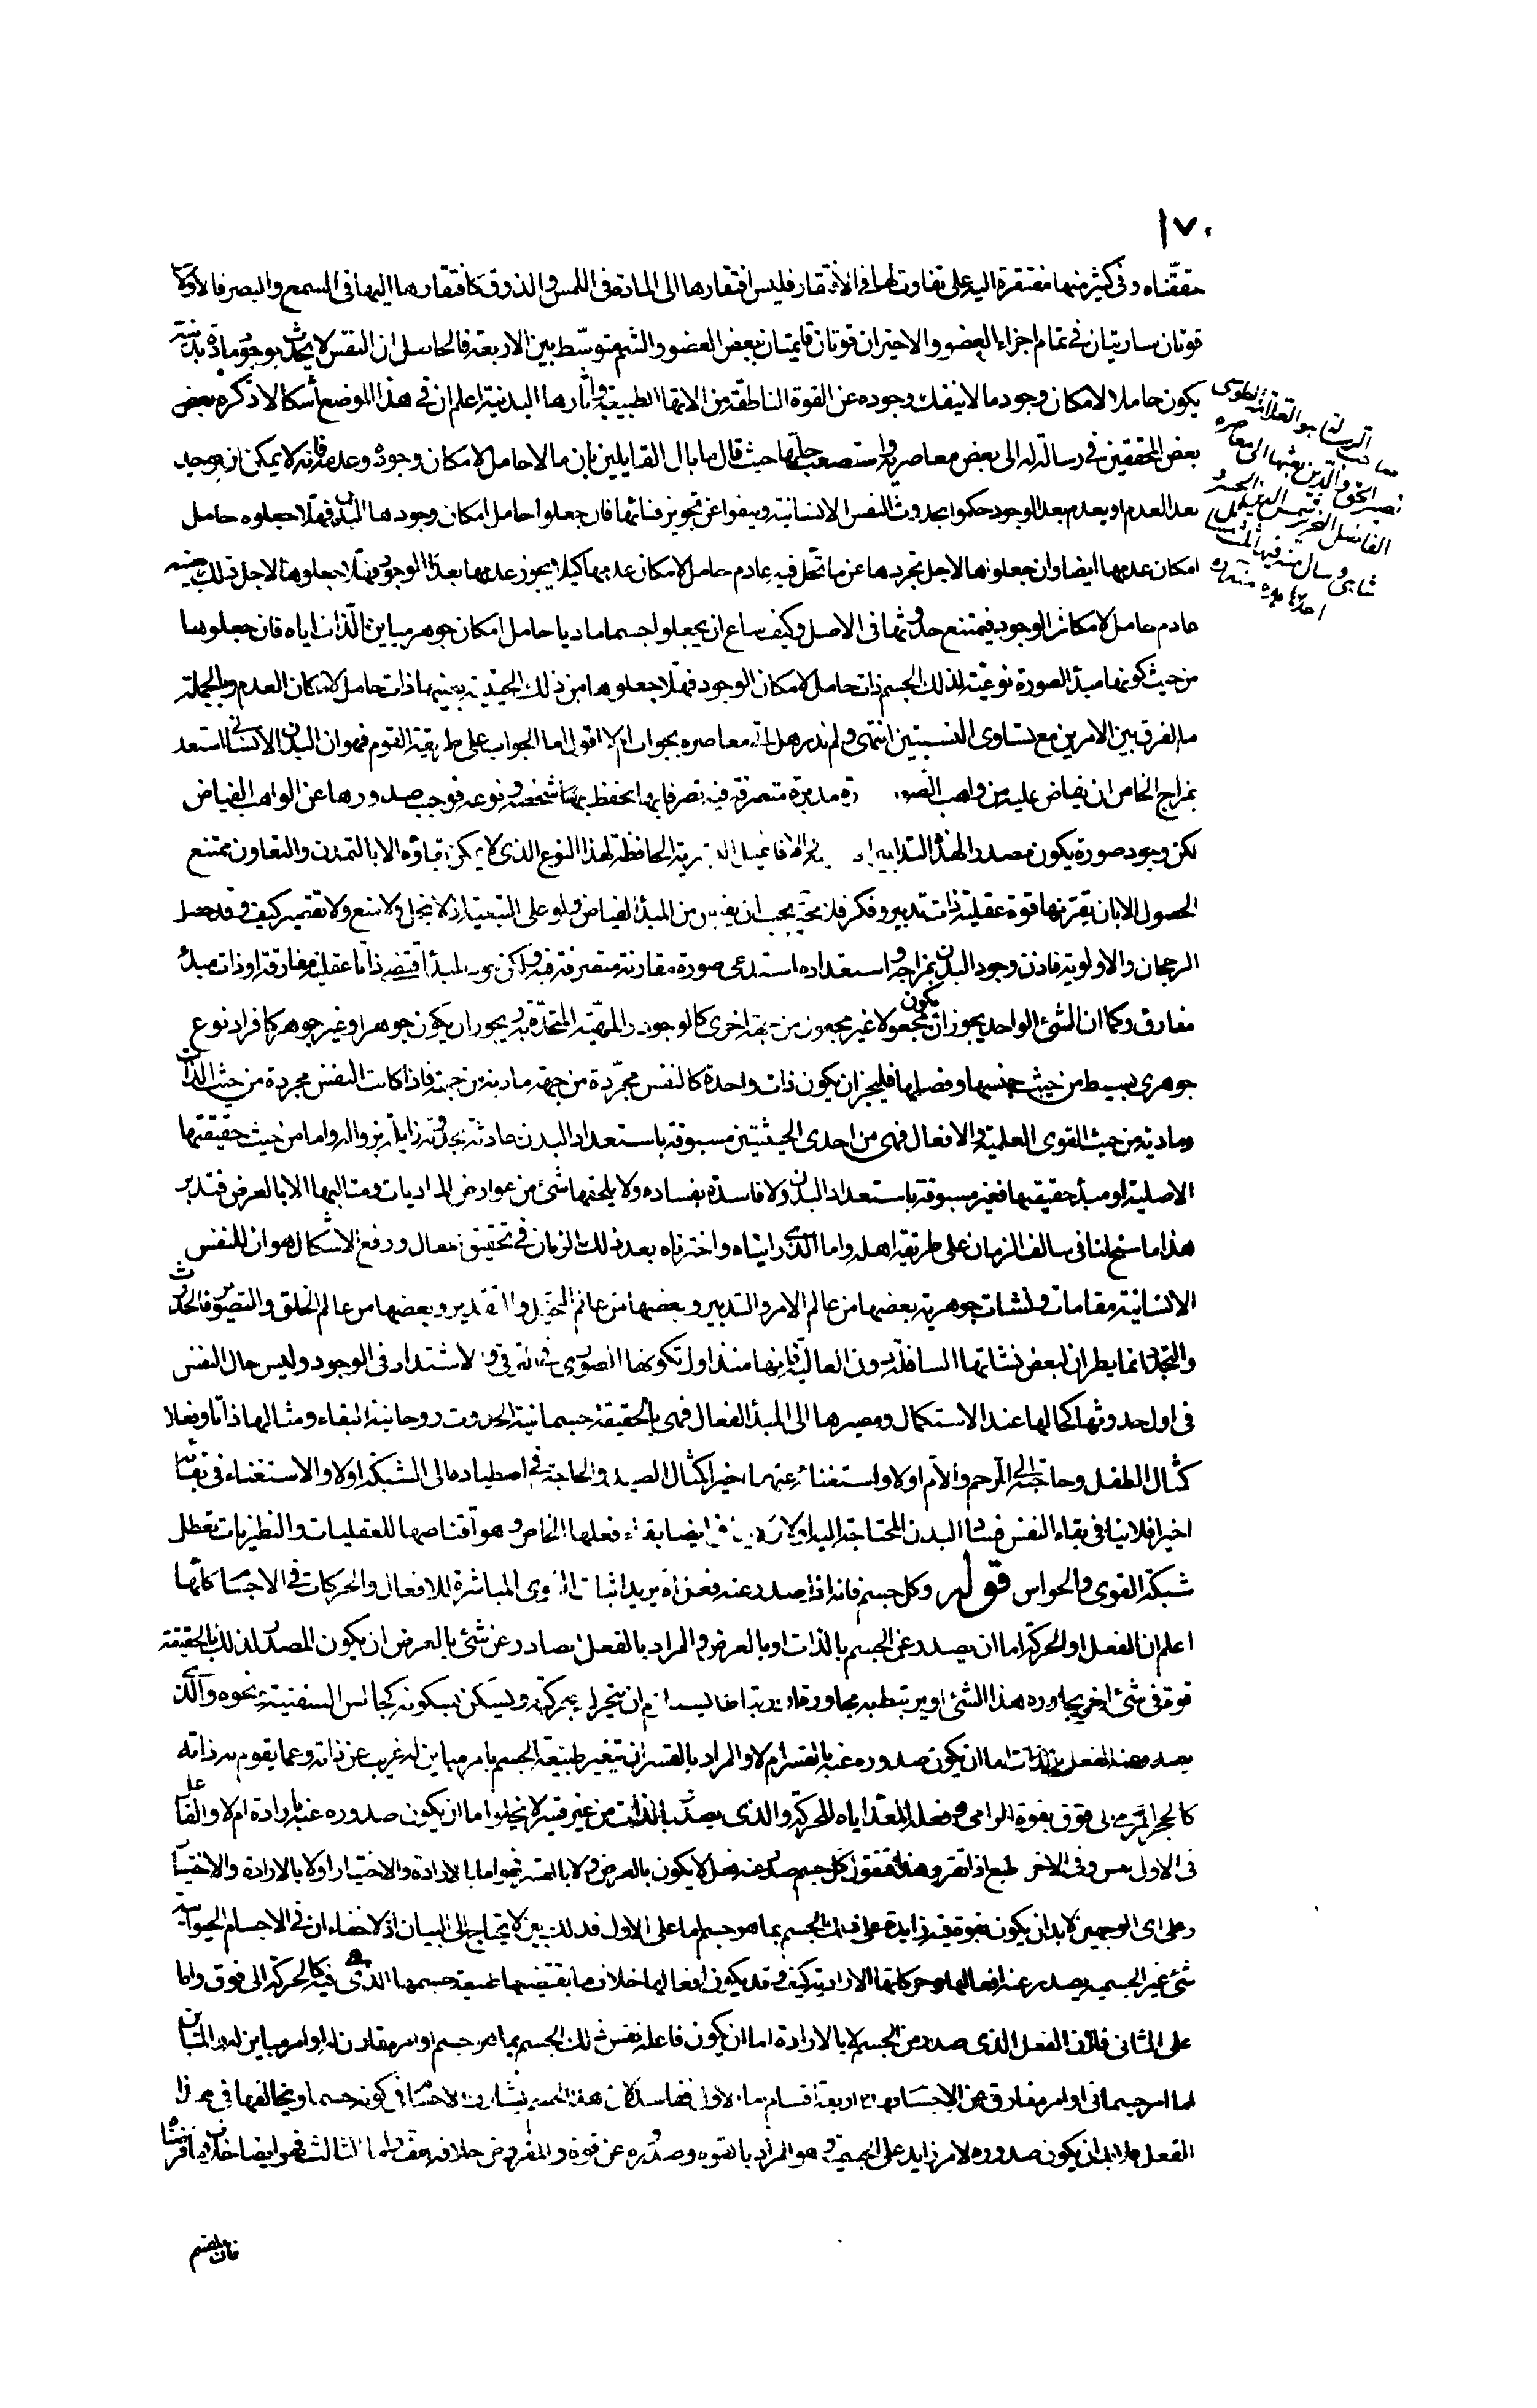 ١٧٠
حققناه وفى كثير منها مفتقرة اليه على تفاوت لها فى الافتقار فليس افتقارها الى المادة فى اللمس والذوق كافتقارها اليها فى السمع والبصر فالاوليا
قوتان ساريتان فى تمام اجزاء العضو والاخيران قوتان قايمتان ببعض العضو والشم متوسط بين الاربعة فالحاصل ان النفس لا يحدث بوجود مادة بدنية
يكون حاملا لامكان وجود ما لا ينفك وجوده عن القوة الناطقة من الاتها الطبيعية واثارها البدنية اعلم ان فى هذا الموضع اشكالا ذكره بعض
بعض المحققين فى رسالة له الى بعض معاصريه واستصعب حلها حيث قال ما بال القايلين بان ما لا حامل لامكان وجوده وعدمه فانه لا يمكن ان يوجد
بعد العدم او يعدم بعد الوجود حكموا بحدوث النفس الانسانية ومنعوا عن تجويز فنائها فان جعلوا حامل امكان وجودها البدن فهلا جعلوه حامل
امكان عدمها ايضا وان جعلوها لاجل تجردها عن ما تحل فيه عادم حامل لامكان عدمها كيلا يجوز عدمها بعد الوجود فهلا جعلوها لاجل ذلك بعينه
عادم حامل لامكان الوجود فيمتنع حدوثها فى الاصل وكيف ساغ ان يجعلوا جسما ماديا حامل امكان جوهر مباين الذات اياه فان جعلوها
من حيث كونها مبدأ لصورة نوعية لذلك الجسم ذات حامل لامكان الوجود فهلا جعلوها من ذلك الحيثية بعينها ذات حامل لامكان العدم وبالجملة
ما الفرق بين الامرين مع تساوى النسبتين انتهى ولم ندر هل اتى معاصره بجواب ام لا اقول اما الجواب على طريقة القوم فهو ان البدن الانسانى استعد
بمزاج الخاص ان يفاض عليه من واهب الصور مدبرة متصرفة فيه تصرفا بها تحفظ بها شخصه ونوعه فوجب صدورها عن الواهب الفياض
لكن وجود صورة يكون مصدر الهذه التدابير الحافظة لهذا النوع الذى لا يمكن بقاؤه الا بالتمدن والتعاون ممتنع
الحصول الا بان يقترنها قوة عقلية ذات تدبير وفكر فلا محة يجب ان يفيض من المبدأ الفياض ولو على التبعية اذ لا بخل ولا منع ولا تقتير كيف وقد حصل
الرجحان والاولوية فاذن وجود البدن بمزاجه واستعداده استدعى صورة مقارنة متصرفة فيه ولكن جود المبدأ اقتضى ذاتا عقلية مفارقة او ذات مبدأ
مفارق وكما ان الشئ الواحد يجوز ان يكون مجعولا غير مجعول من جهة اخرى كالوجود والمهية المتحدة به ويجوز ان يكون جوهرا وغير جوهر كافراد نوع
جوهرى بسيط من حيث جنسها وفصلها فليجز ان يكون ذات واحدة كالنفس مجردة من جهة مادية من جهة فاذا كانت النفس مجردة من حيث الذات
ومادية من حيث القوى العلمية والافعال فهى من احدى الحيثيتين مسبوقة باستعداد البدن حادثة بحدوثه زايلة بزواله واما من حيث حقيقتها
الاصلية او مبدأ حقيقتها فغير مسبوقة باستعداد البدن ولا فاسدة بفساده ولا يلحقها شئ من عوارض الماديات ومثالبها الا بالعرض فتدبر
هذا ما سنح لنا فى سالف الزمان على طريقة اهله واما الذى رايناه واخترناه بعد ذلك الزمان فى تحقيق الحال ورفع الاشكال هو ان للنفس
الانسانية مقامات ونشات جوهرية بعضها من عالم الامر والتدبير وبعضها من عالم التخيل والتقدير وبعضها من عالم الخلق والتصوير فالحدوث
والتجدد انما يطران لبعض نشاتها السافلة دون العالية فانها منذ اول تكونها الصورى فى الترقى والاشتداد فى الوجود وليس حال النفس
فى اول حدوثها كحالها عند الاستكمال ومصيرها الى المبدأ الفعال فهى بالحقيقة جسمانية الحدوث روحانية البقاء ومثالها ذاتا وفعلا
كمثال الطفل وحاجته الى الرحم والام اولا واستغنائه عنهما اخيرا كمثال الصيد والحاجة فى اصطياده الى الشبكة اولا والاستغناء فى بقائه
اخيرا فلا ينافى بقاء النفس فساد البدن المحتاجة اليه اولا ايضا بقاء فعلها الخاص وهو اقتناصها للعقليات والنظريات تعطل
شبكة القوى والحواس قوله وكل جسم فانه اذا صدر عنه فعل اه يريد اثبات القوى المباشرة للافعال والحركات فى الاجسام كلها
اعلم ان الفعل او الحركة اما ان يصدر عن الجسم بالذات او بالعرض والمراد بالفعل الصادر عن شئ بالعرض ان يكون المصدر لذلك بالحقيقة
قوة فى شئ اخر يجاوره هذا الشئ او يرتبط به ان يتحرك بحركته ويسكن بسكونه كجالس السفينة ونحوه والذى
يصدر عنه الفعل بالذات اما ان يكون صدوره عنه بالقسر ام لا والمراد بالقسر ان تتغير طبيعة الجسم بامر مباين له غريب عن ذاته وعما يقوم به ذاته
كالحجر المرمى الى فوق بقوة الرامى وفعله المعد اياه للحركة والذى يصدر بالذات من غير قسر لا يخلو اما ان يكون صدوره عنه بارادة ام لا والفاعل
فى الاول نفس وفى الاخر طبع اذا تقرر هذا فنقول كل جسم صدر عنه فعل لا يكون بالعرض ولا بالقسر فهو اما بالارادة والاختيار اولا بالارادة والاختيار
وعلى اى الوجهين لا بد ان يكون بقوة فيه زايدة على ذلك الجسم بما هو جسم اما على الاول فذلك بين لا يحتاج الى البيان اذ لا خفاء ان فى الاجسام الحيوانية
شئ غير الجسمية يصدر عنه افعالها وحركاتها الارادية كيف وقد يكون افعالها خلاف ما يقتضيها طبيعة جسمها الذى هى فيه كالحركة الى فوق واما
على الثانى فلان الفعل الذى صدر من الجسم لا بالارادة اما ان يكون فاعله نفس ذلك الجسم بما هو جسم او امر مقارن له او امر مباين له والمباين
اما امر جسمانى او امر مفارق عن الاجسام فهذه اربعة اقسام اما الاول ففاسد لان هذا الجسم يشارك الاجسام فى كونه جسما ويخالفها فى صدور هذا
الفعل فلا بد ان يكون صدوره لامر زايد على الجسمية وهو المراد بالقوة وصدوره عن قوة والمفروض خلافه هف واما الثالث فهو ايضا خلاف ما فرضناه
فان القسم
صاحب الرسالة هو العلامة الطوسى
نصير الحق والدين بعثها الى معاصره
الفاضل النحرير شمس الدين الخسرو
شاهى وسال منه فيها ثلث مسايل
احديها هذه منه ره